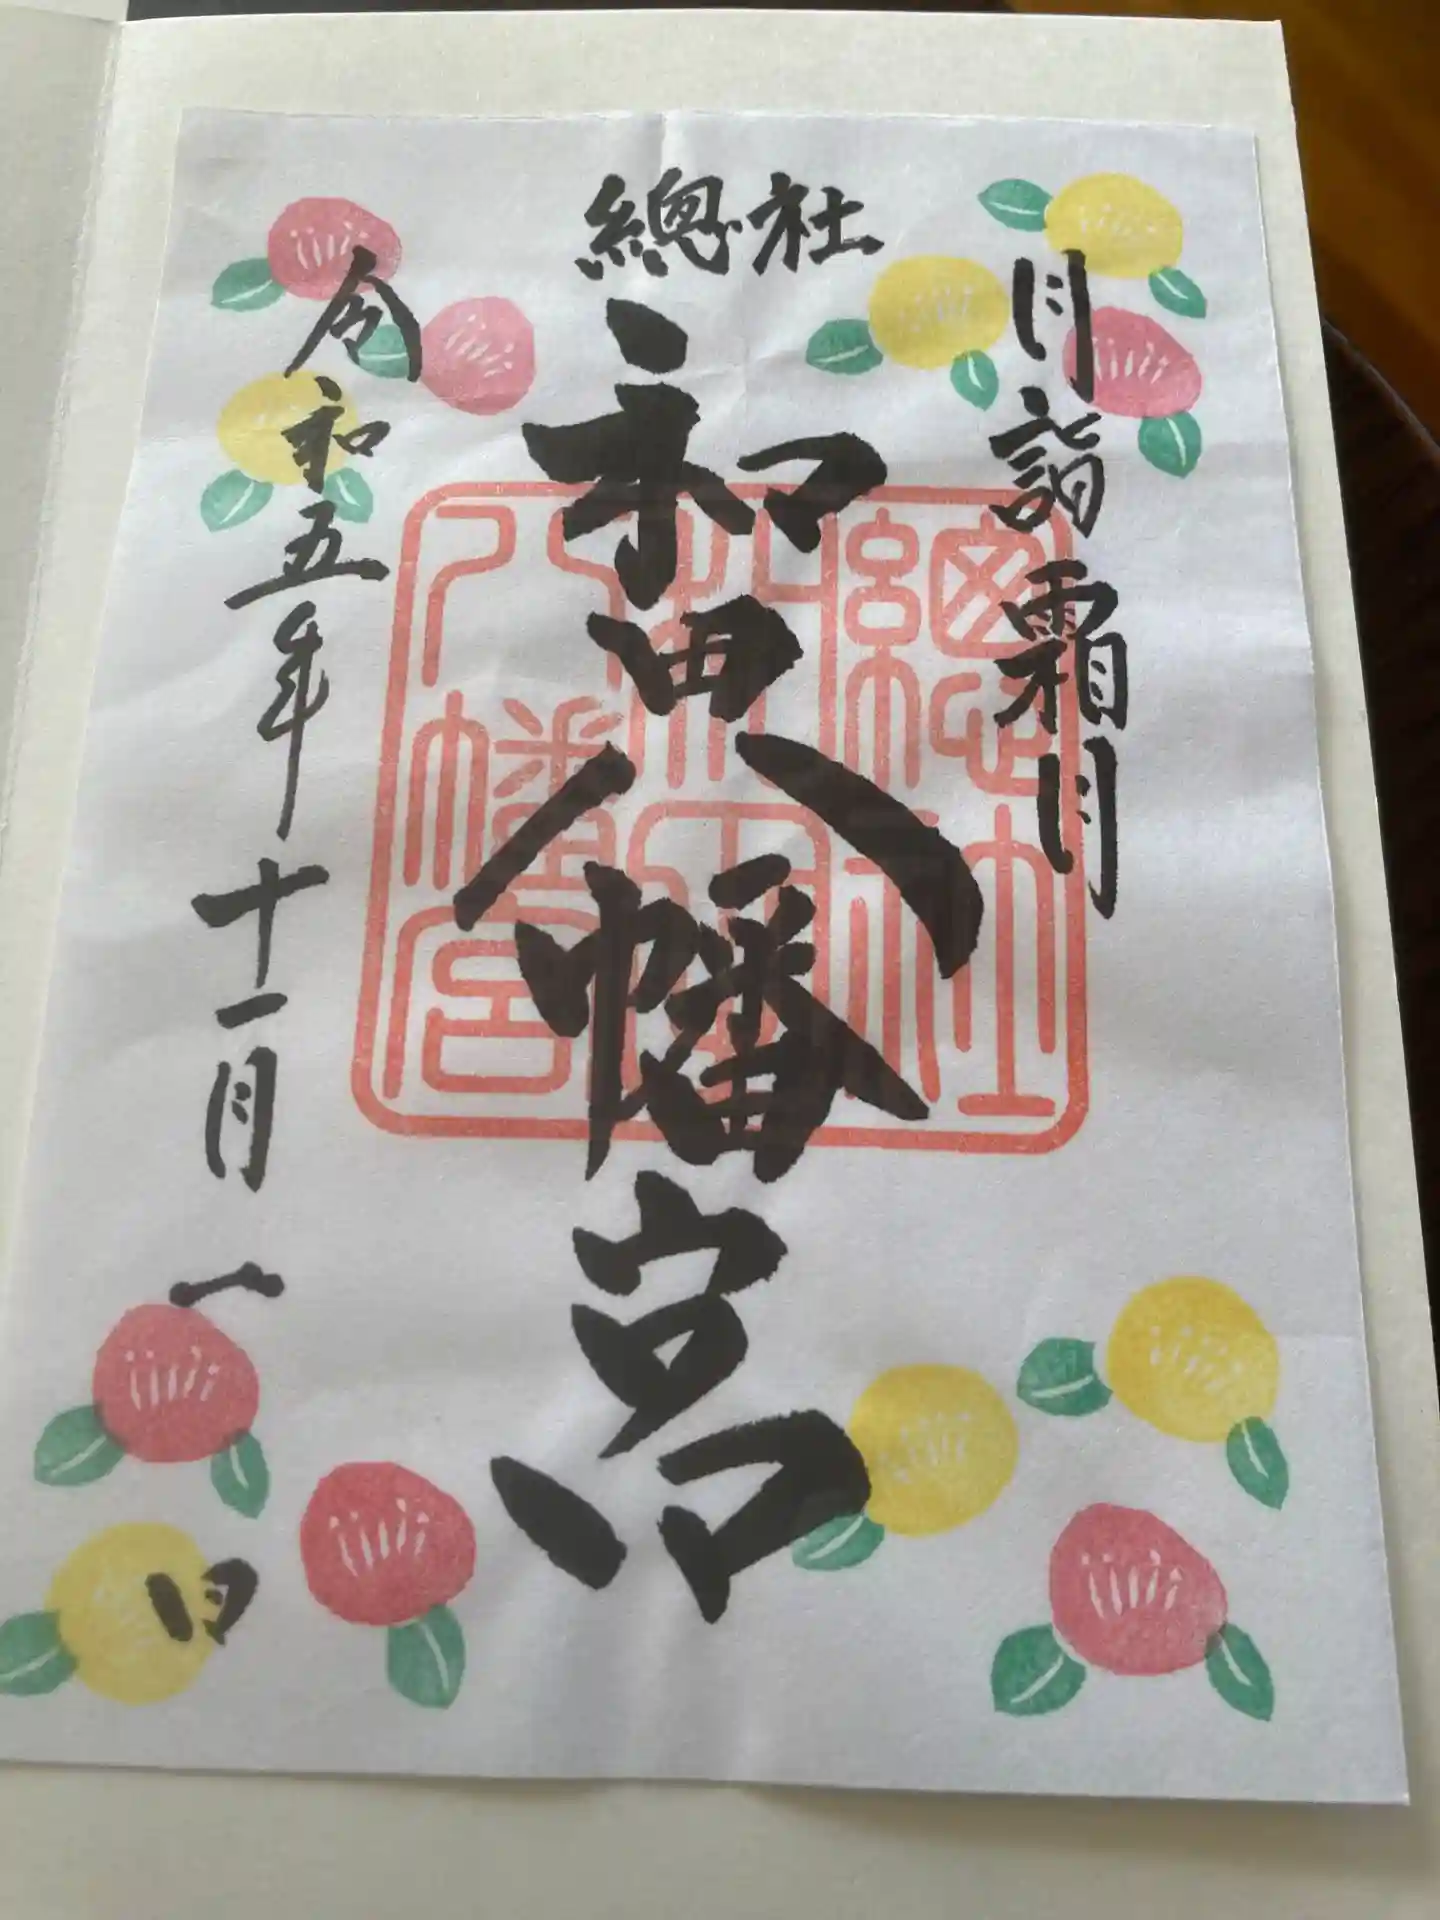 月詣 霜月
總社
和田八幡宮
總社
和田
八幡宮
令和五年十一月一日